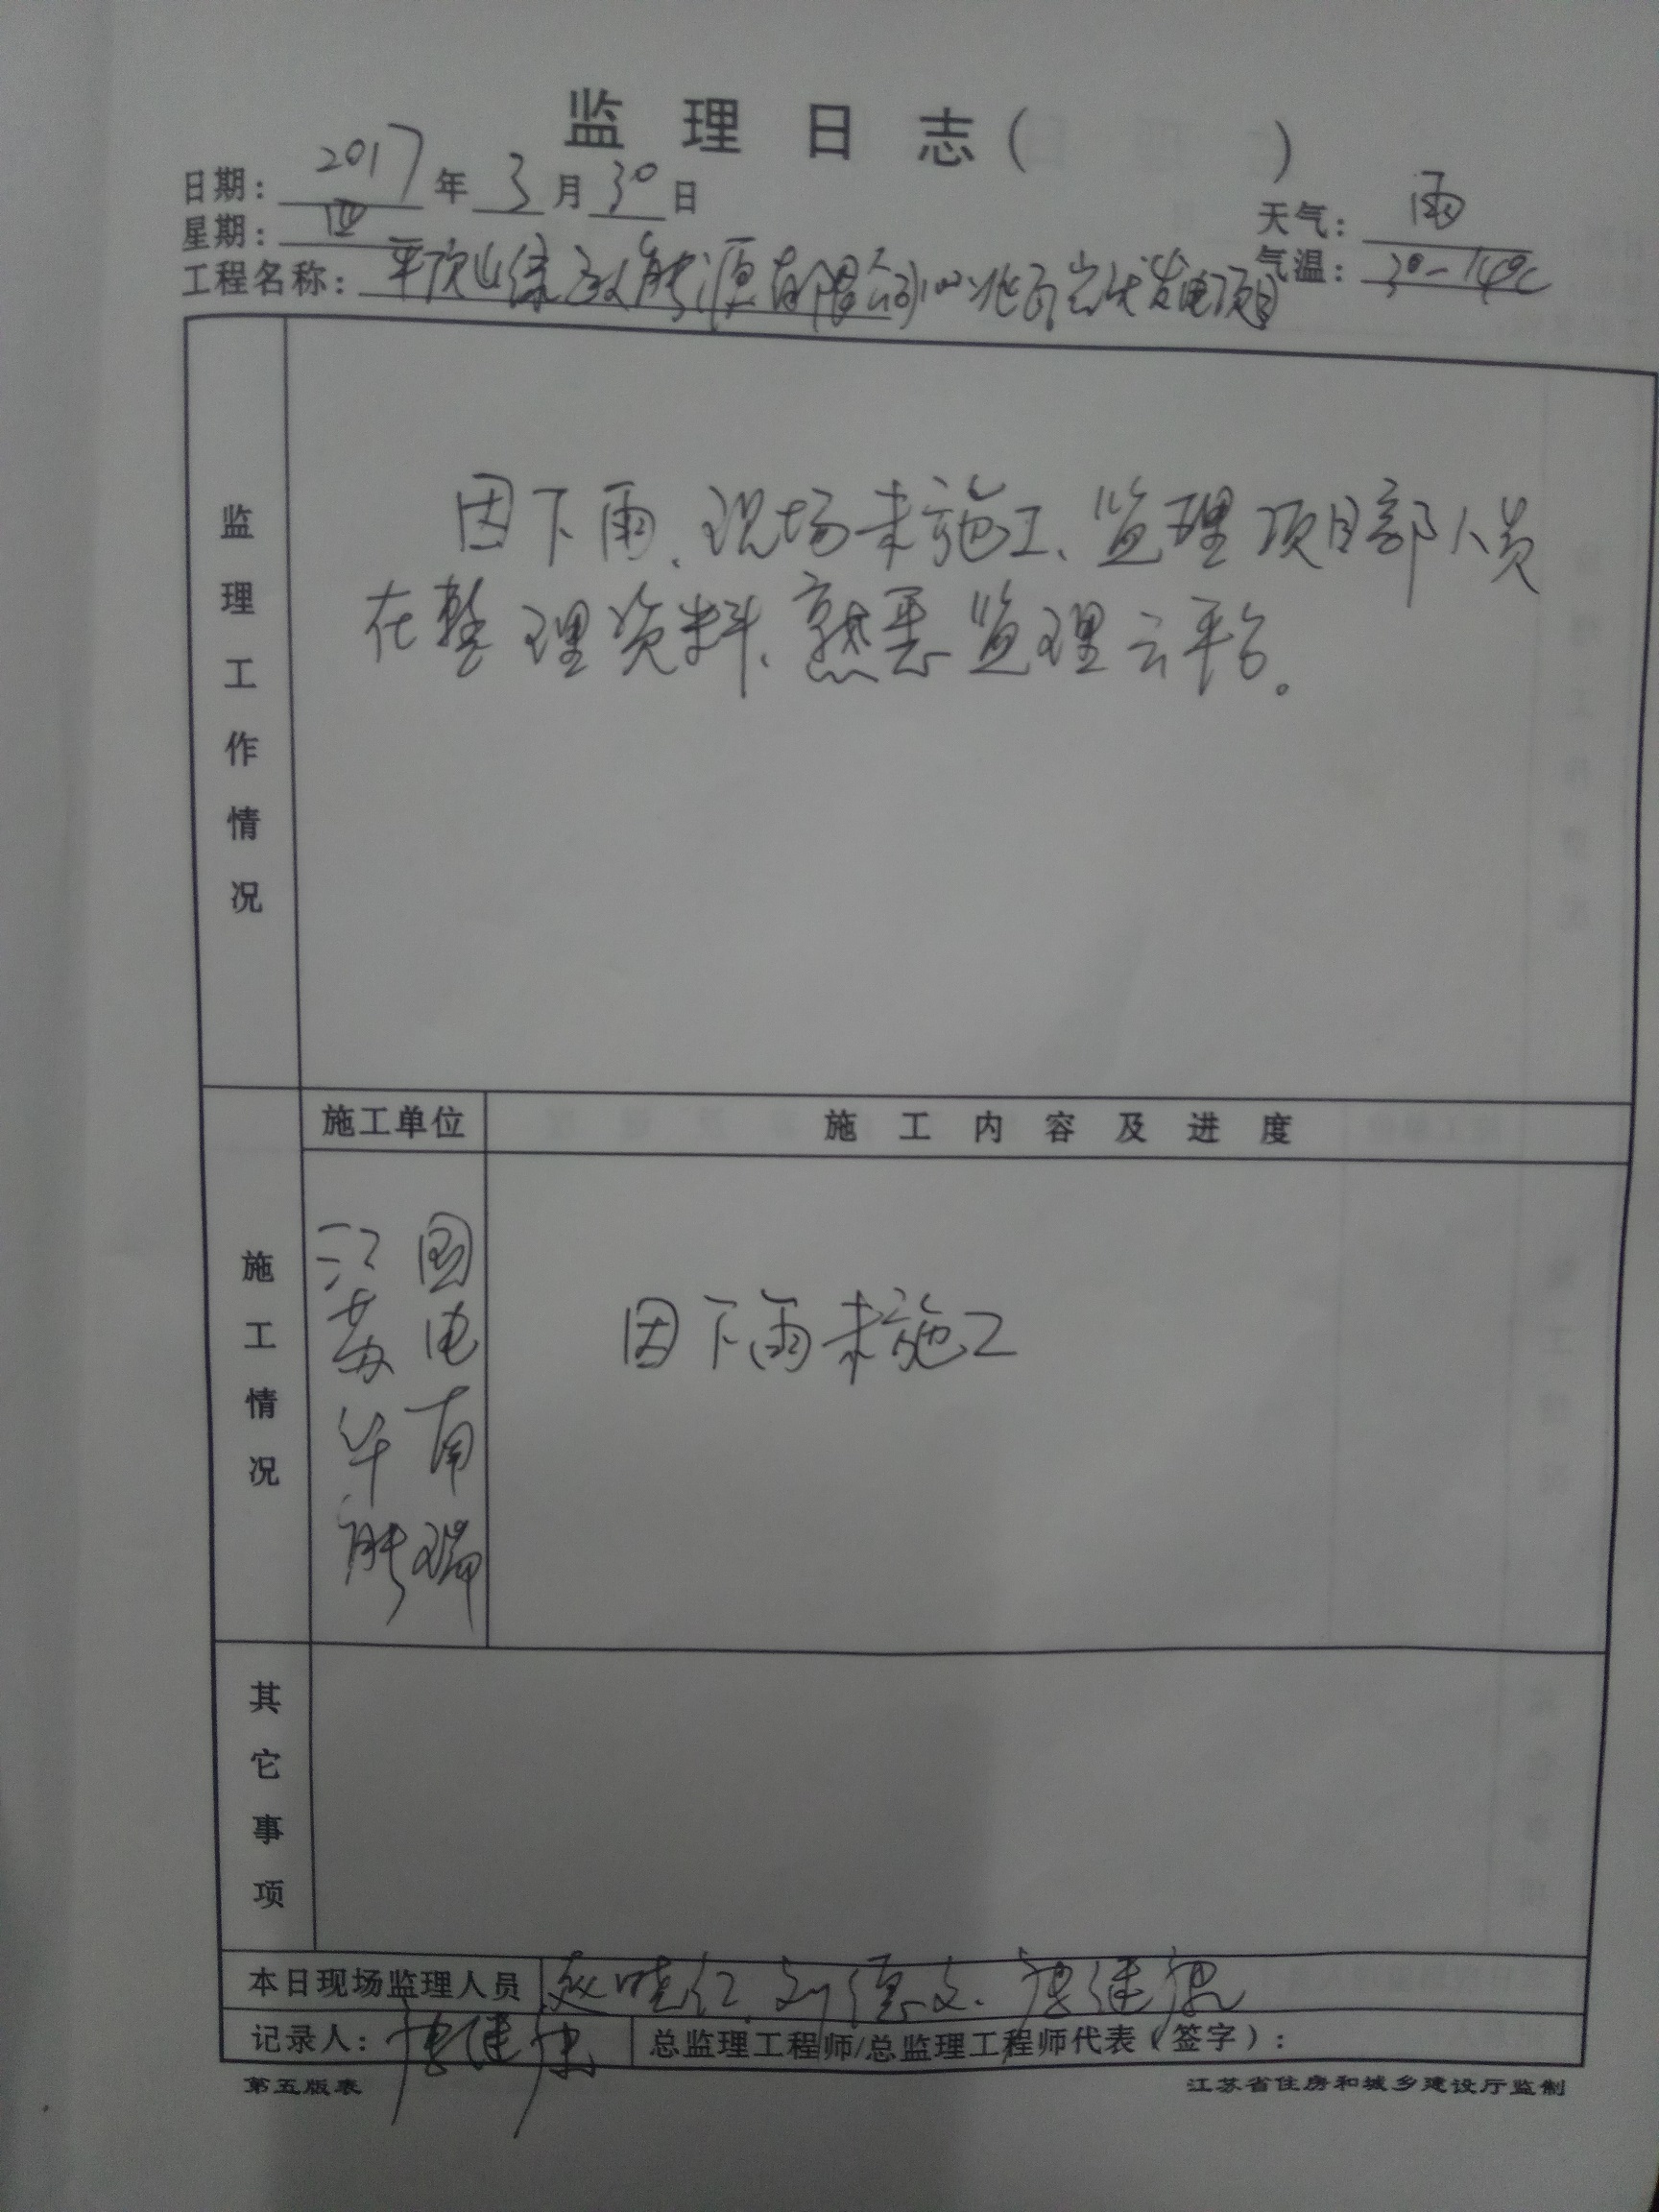 监理日志（ ）
日期：2017年3月30日
天气：雨
星期：四
气温：3°-14℃
工程名称：平顶山绿政能源有限公司100兆瓦光伏发电项目
监理工作情况
因下雨、现场未施工、监理项目部人员
在整理资料、熟悉监理云平台。
施工情况
施工单位
施工内容及进度
国电南瑞
江苏华能
因下雨未施工
其它事项
本日现场监理人员 赵晓仁、刘德文、唐继
记录人：唐继
总监理工程师/总监理工程师代表（签字）：
第五版表
江苏省住房和城乡建设厅监制